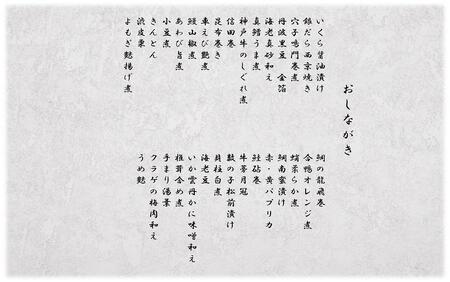 おしながき
いくら醤油漬け
銀だら西京焼き
穴子鳴門巻煮
丹波黒豆 金箔
海老真砂和え
真鱈うま煮
神戸牛のしぐれ煮
信田巻き
昆布巻き
車えび艶煮
鰻山椒煮
あわび旨煮
小豆煮
きんとん
渋皮栗
よもぎ麩揚げ煮
鯛の龍飛巻
合鴨オレンジ煮
蛸柔らか煮
鯛南蛮漬け
赤・黄パプリカ
鮭砧巻
牛蒡月冠
数の子松前漬け
貝柱白煮
海老豆
いか雲丹かに味噌和え
椎茸含め煮
手まり湯葉
クラゲの梅肉和え
うめ麩